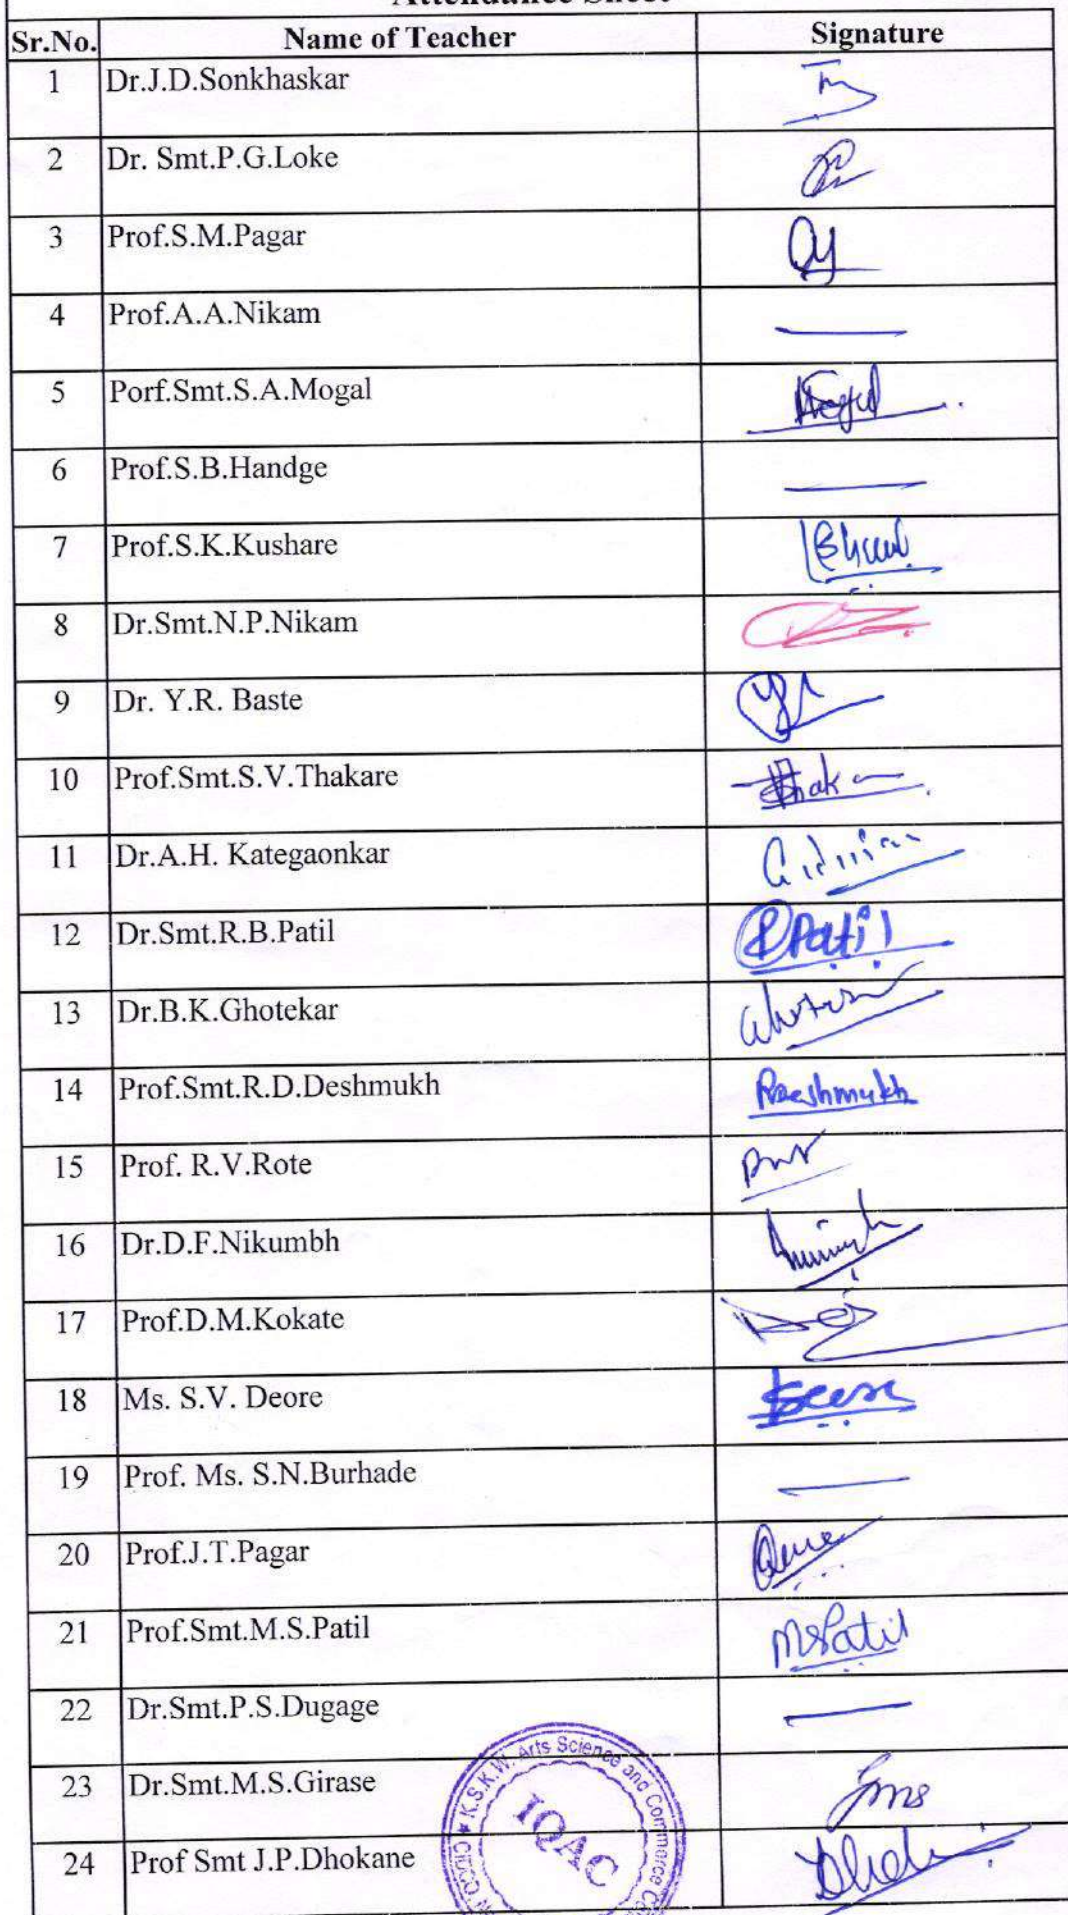 Attendance Sheet
Sr.No. Name of Teacher Signature
1 Dr.J.D.Sonkhaskar
2 Dr. Smt.P.G.Loke
3 Prof.S.M.Pagar
4 Prof.A.A.Nikam —
5 Porf.Smt.S.A.Mogal
6 Prof.S.B.Handge —
7 Prof.S.K.Kushare
8 Dr.Smt.N.P.Nikam
9 Dr. Y.R. Baste
10 Prof.Smt.S.V.Thakare
11 Dr.A.H. Kategaonkar
12 Dr.Smt.R.B.Patil RPatil
13 Dr.B.K.Ghotekar
14 Prof.Smt.R.D.Deshmukh RDeshmukh
15 Prof. R.V.Rote
16 Dr.D.F.Nikumbh
17 Prof.D.M.Kokate
18 Ms. S.V. Deore
19 Prof. Ms. S.N.Burhade —
20 Prof.J.T.Pagar
21 Prof.Smt.M.S.Patil MSPatil
22 Dr.Smt.P.S.Dugage —
23 Dr.Smt.M.S.Girase
24 Prof Smt J.P.Dhokane
K.S.K.W. Arts Science and Commerce
CIDCO
IQAC